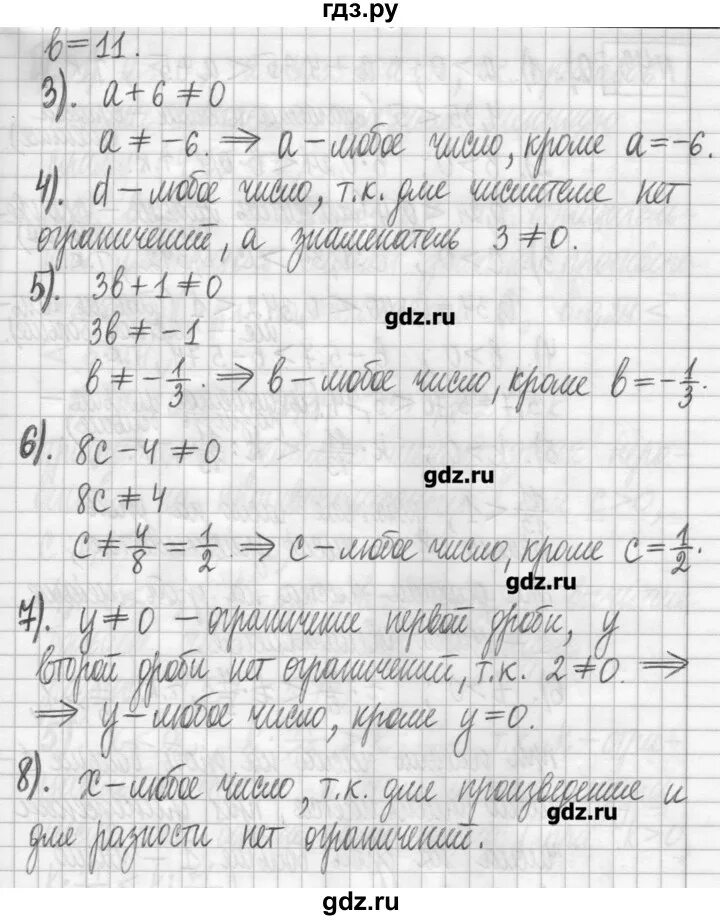 гдз.ру
в = 11.
3). a + 6 ≠ 0
a ≠ -6. ⇒ a – любое число, кроме a = -6.
4). d – любое число, т.к. для числителя нет
ограничений, а знаменатель 3 ≠ 0.
5). 3в + 1 ≠ 0
gdz.ru
3в ≠ -1
в ≠ -1/3. ⇒ в – любое число, кроме в = -1/3.
6). 8c - 4 ≠ 0
gdz.ru
8c ≠ 4
c ≠ 4/8 = 1/2. ⇒ c – любое число, кроме c = 1/2.
gdz.ru
7). y ≠ 0 – ограничение первой дроби, у
второй дроби нет ограничений, т.к. 2 ≠ 0. ⇒
⇒ y – любое число, кроме y = 0.
8). x – любое число, т.к. для произведения и
gdz.ru
для разности нет ограничений.
gdz.ru